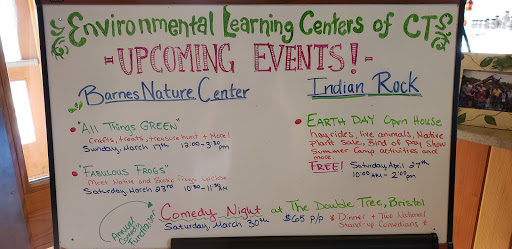 Environmental Learning Centers of CTS
- UPCOMING EVENTS! -
Barnes Nature Center
• "All Things GREEN"
Crafts, treats, treasure hunt + More!
Sunday, March 17th 12:00-3:30 pm
• "FABULOUS FROGS"
Meet Native and Exotic frogs up close
Saturday, March 23rd 10:30-11:30 AM
Indian Rock
• EARTH DAY Open House
hayrides, live animals, Native
Plant Sale, Bird of Prey Show
Summer Camp activities and
more.
FREE! Saturday, April 27th
10:00 AM - 2:00 pm
Annual
Comedy
Fundraiser
Comedy Night at The Double Tree, Bristol
Saturday, March 30th $65 P/P & Dinner + Two National
Stand-up Comedians